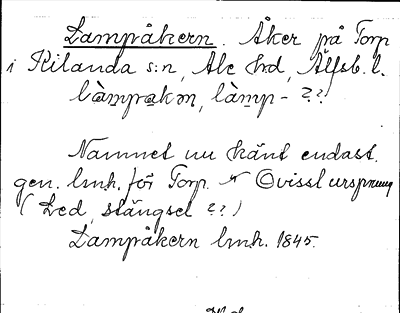 Lampåkern. Åker på Torp
i Kilanda s:n, Ale hrd, Älfsb. l.
làmpakən, làmp- ??
Namnet nu känt endast
gen. lmk. för Torp. Ovisst ursprung
(Led, stängsel ??)
Lampåkern lmk. 1845.